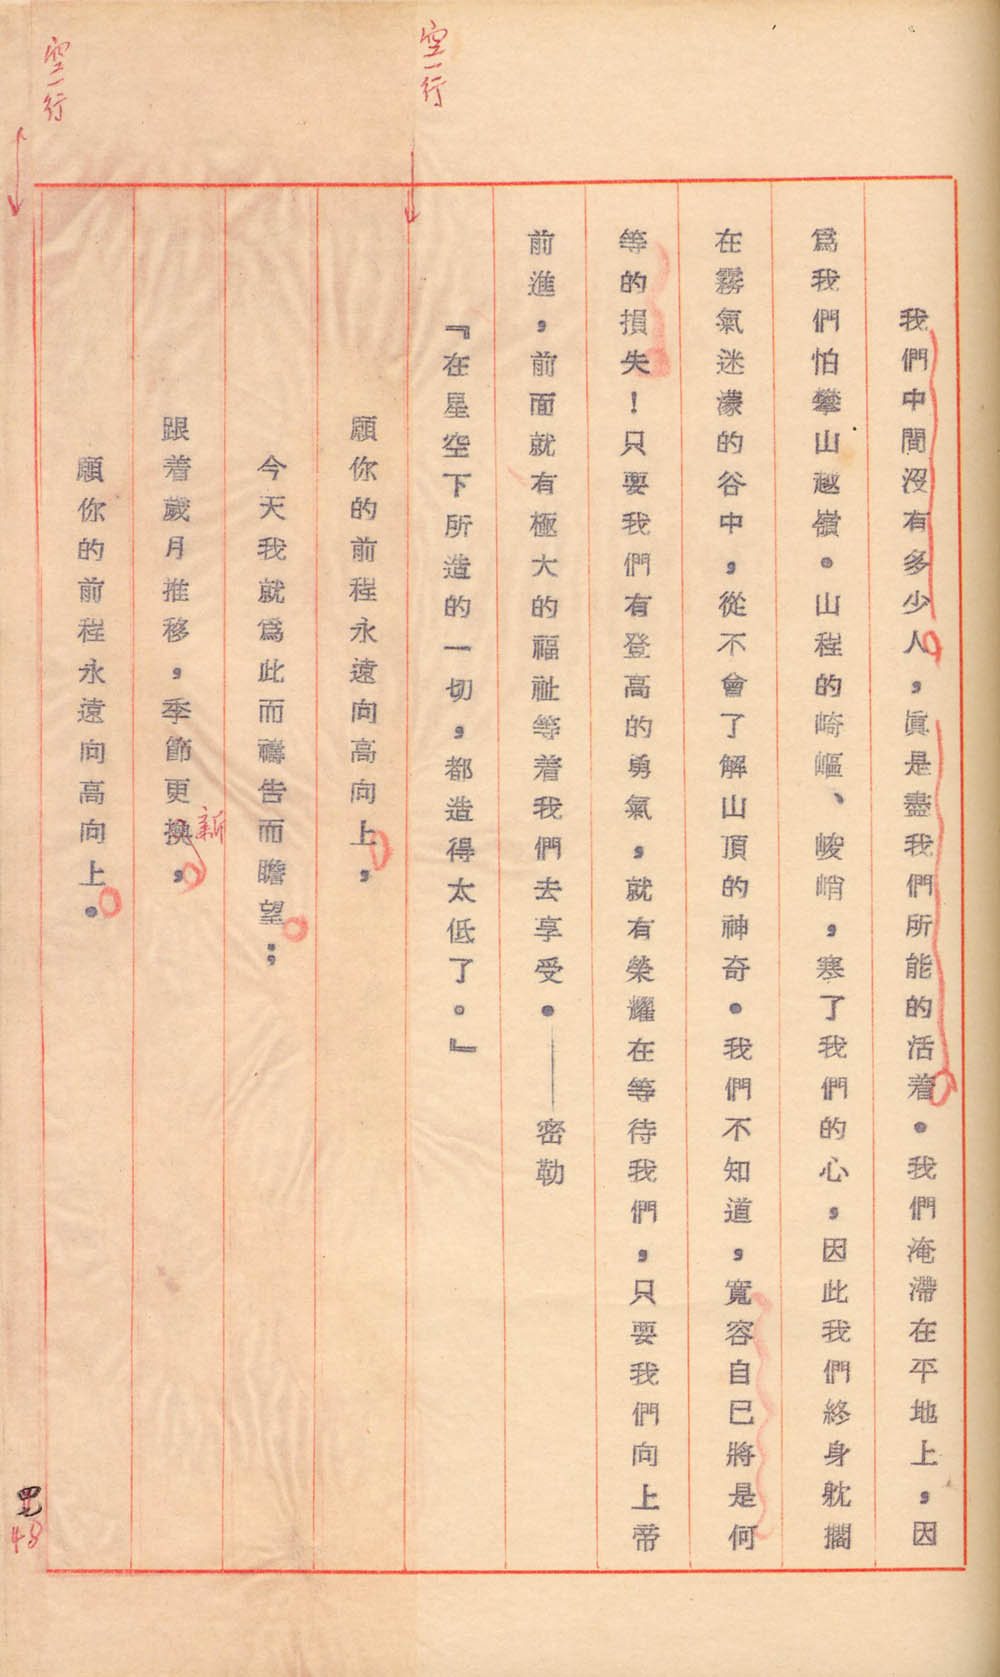 我們中間沒有多少人，眞是盡我們所能的活着。我們淹滯在平地上，因
爲我們怕攀山越嶺。山程的崎嶇、峻峭，寒了我們的心，因此我們終身躭擱
在霧氣迷濛的谷中，從不會了解山頂的神奇。我們不知道，寬容自己將是何
等的損失！只要我們有登高的勇氣，就有榮耀在等待我們，只要我們向上帝
前進，前面就有極大的福祉等着我們去享受。——密勒
空一行
『在星空下所造的一切，都造得太低了。』
願你的前程永遠向高向上，
今天我就爲此而禱告而瞻望；
跟着歲月推移，季節更換，
新
願你的前程永遠向高向上。
空一行
48